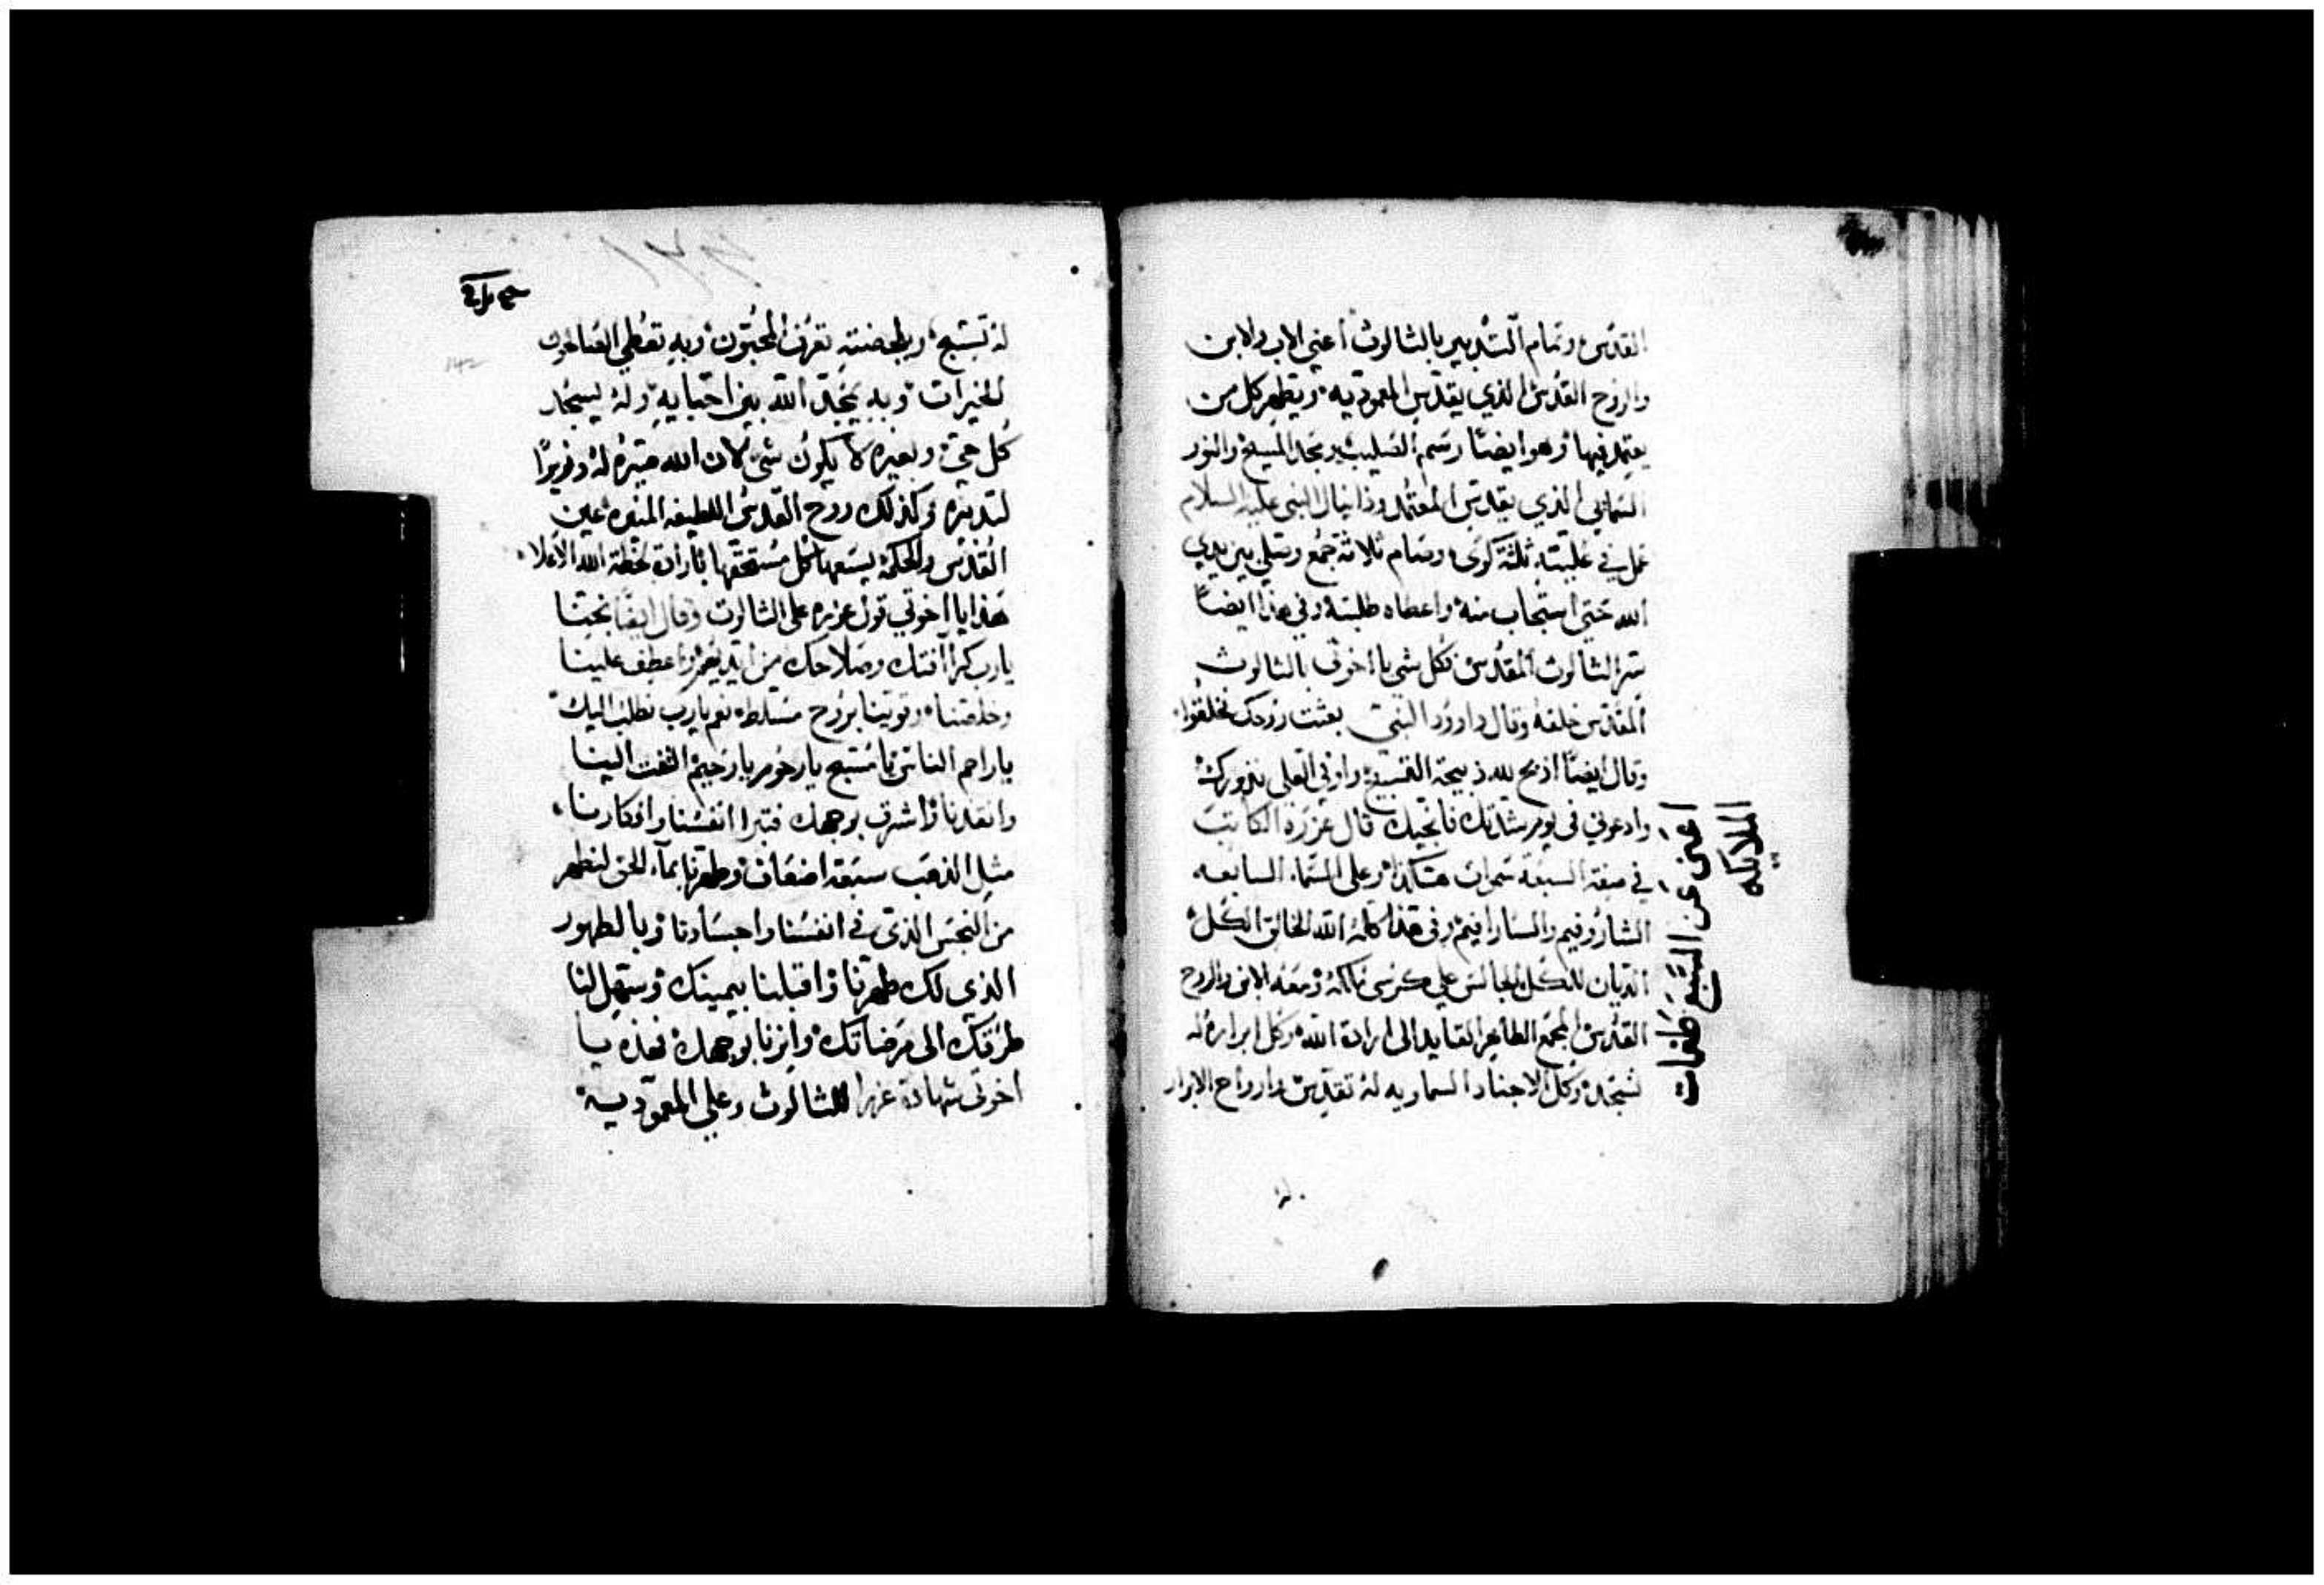 القدس وتمام التدبير بالثالوث أعني الاب والابن
والروح القدس الذي يقدس المعموديه ويطهر كل من
يعتمد فيها وهو ايضًا رسم الصليب مجد المسيح والنور
السمايي الذي يقدس المعتمد ودانيال النبي عليه السلام
عمل في عليته ثلثة كوى وصام ثلاثة جمع وصلى بين يدي
الله حتى استجاب منه واعطاه طلبته وفي هذا ايضًا
سر الثالوث المقدس فكل شي يا اخوتي بالثالوث
المقدس خلقه وقال داوود النبي بعثت روحك فخلقوا
وقال ايضًا اذبح لله ذبيحة التسبيح واوفي العلي نذورك
وادعوني في يوم شدتك فانجيك قال عزره الكاتب
في صفة السبعة سموات هكذا وعلى السماء السابعه
الشاروفيم والسارافيم وفي هذا كله الله الخالق الكل
الديان للكل الجالس على كرسي ومعه الابن والروح
القدس المجمع الطاهر القايد الى ارادة الله وكل ابراره له
تسجد وكل الاجناد السماويه له تقدس وارواح الابرار
اعني عن السبع طغمات
الملايكه
له تسبح وبه تعطي
الخيرات وبه يمجد الله بين احبايه وله يسجد
كل حي وبغيره لا يكون شي لان الله صيره له وزيرًا
لتدبيره وكذلك روح القدس اللطيفه المنوره عين
القدس والحكمة يسعها كل مستحقها بارادة الله الاعلا
هذا يا اخوتي قول عزره على الثالوث وقال ايضًا نجنا
يارب كرأفتك وصلاحك من واعطف علينا
وخلصنا وقوينا بروح مسلطه نعم يارب نطلب اليك
ياراحم الناس يا مسبح يارحوم يارحيم التفت الينا
وانقذنا واشرق بوجهك فتبرا انفسنا وافكارنا
مثل الذهب سبعة اضعاف وطهرنا بماء الحق لنطهر
من النجس الذي في انفسنا واجسادنا وبالطهور
الذي لك طهرنا واقبلنا بيمينك وسهل لنا
طرقك الى مرضاتك وانرنا بوجهك فهذه يا
اخوتي شهادة عزرا للثالوث وعلى المعموديه